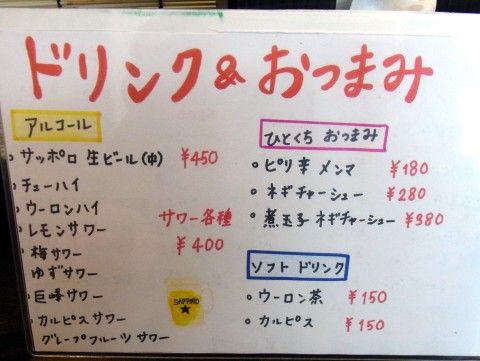 ドリンク&おつまみ
アルコール
・サッポロ 生ビール(中) ¥450
・チューハイ
・ウーロンハイ
・レモンサワー
・梅サワー
ゆずサワー
・巨峰サワー
・カルピスサワー
グレープフルーツサワー
サワー各種
¥400
SAPPORO
ひとくち おつまみ
・ピリ辛 メンマ ¥180
・ネギチャーシュー ¥280
・煮玉子 ネギチャーシュー ¥380
ソフト ドリンク
・ウーロン茶 ¥150
・カルピス ¥150